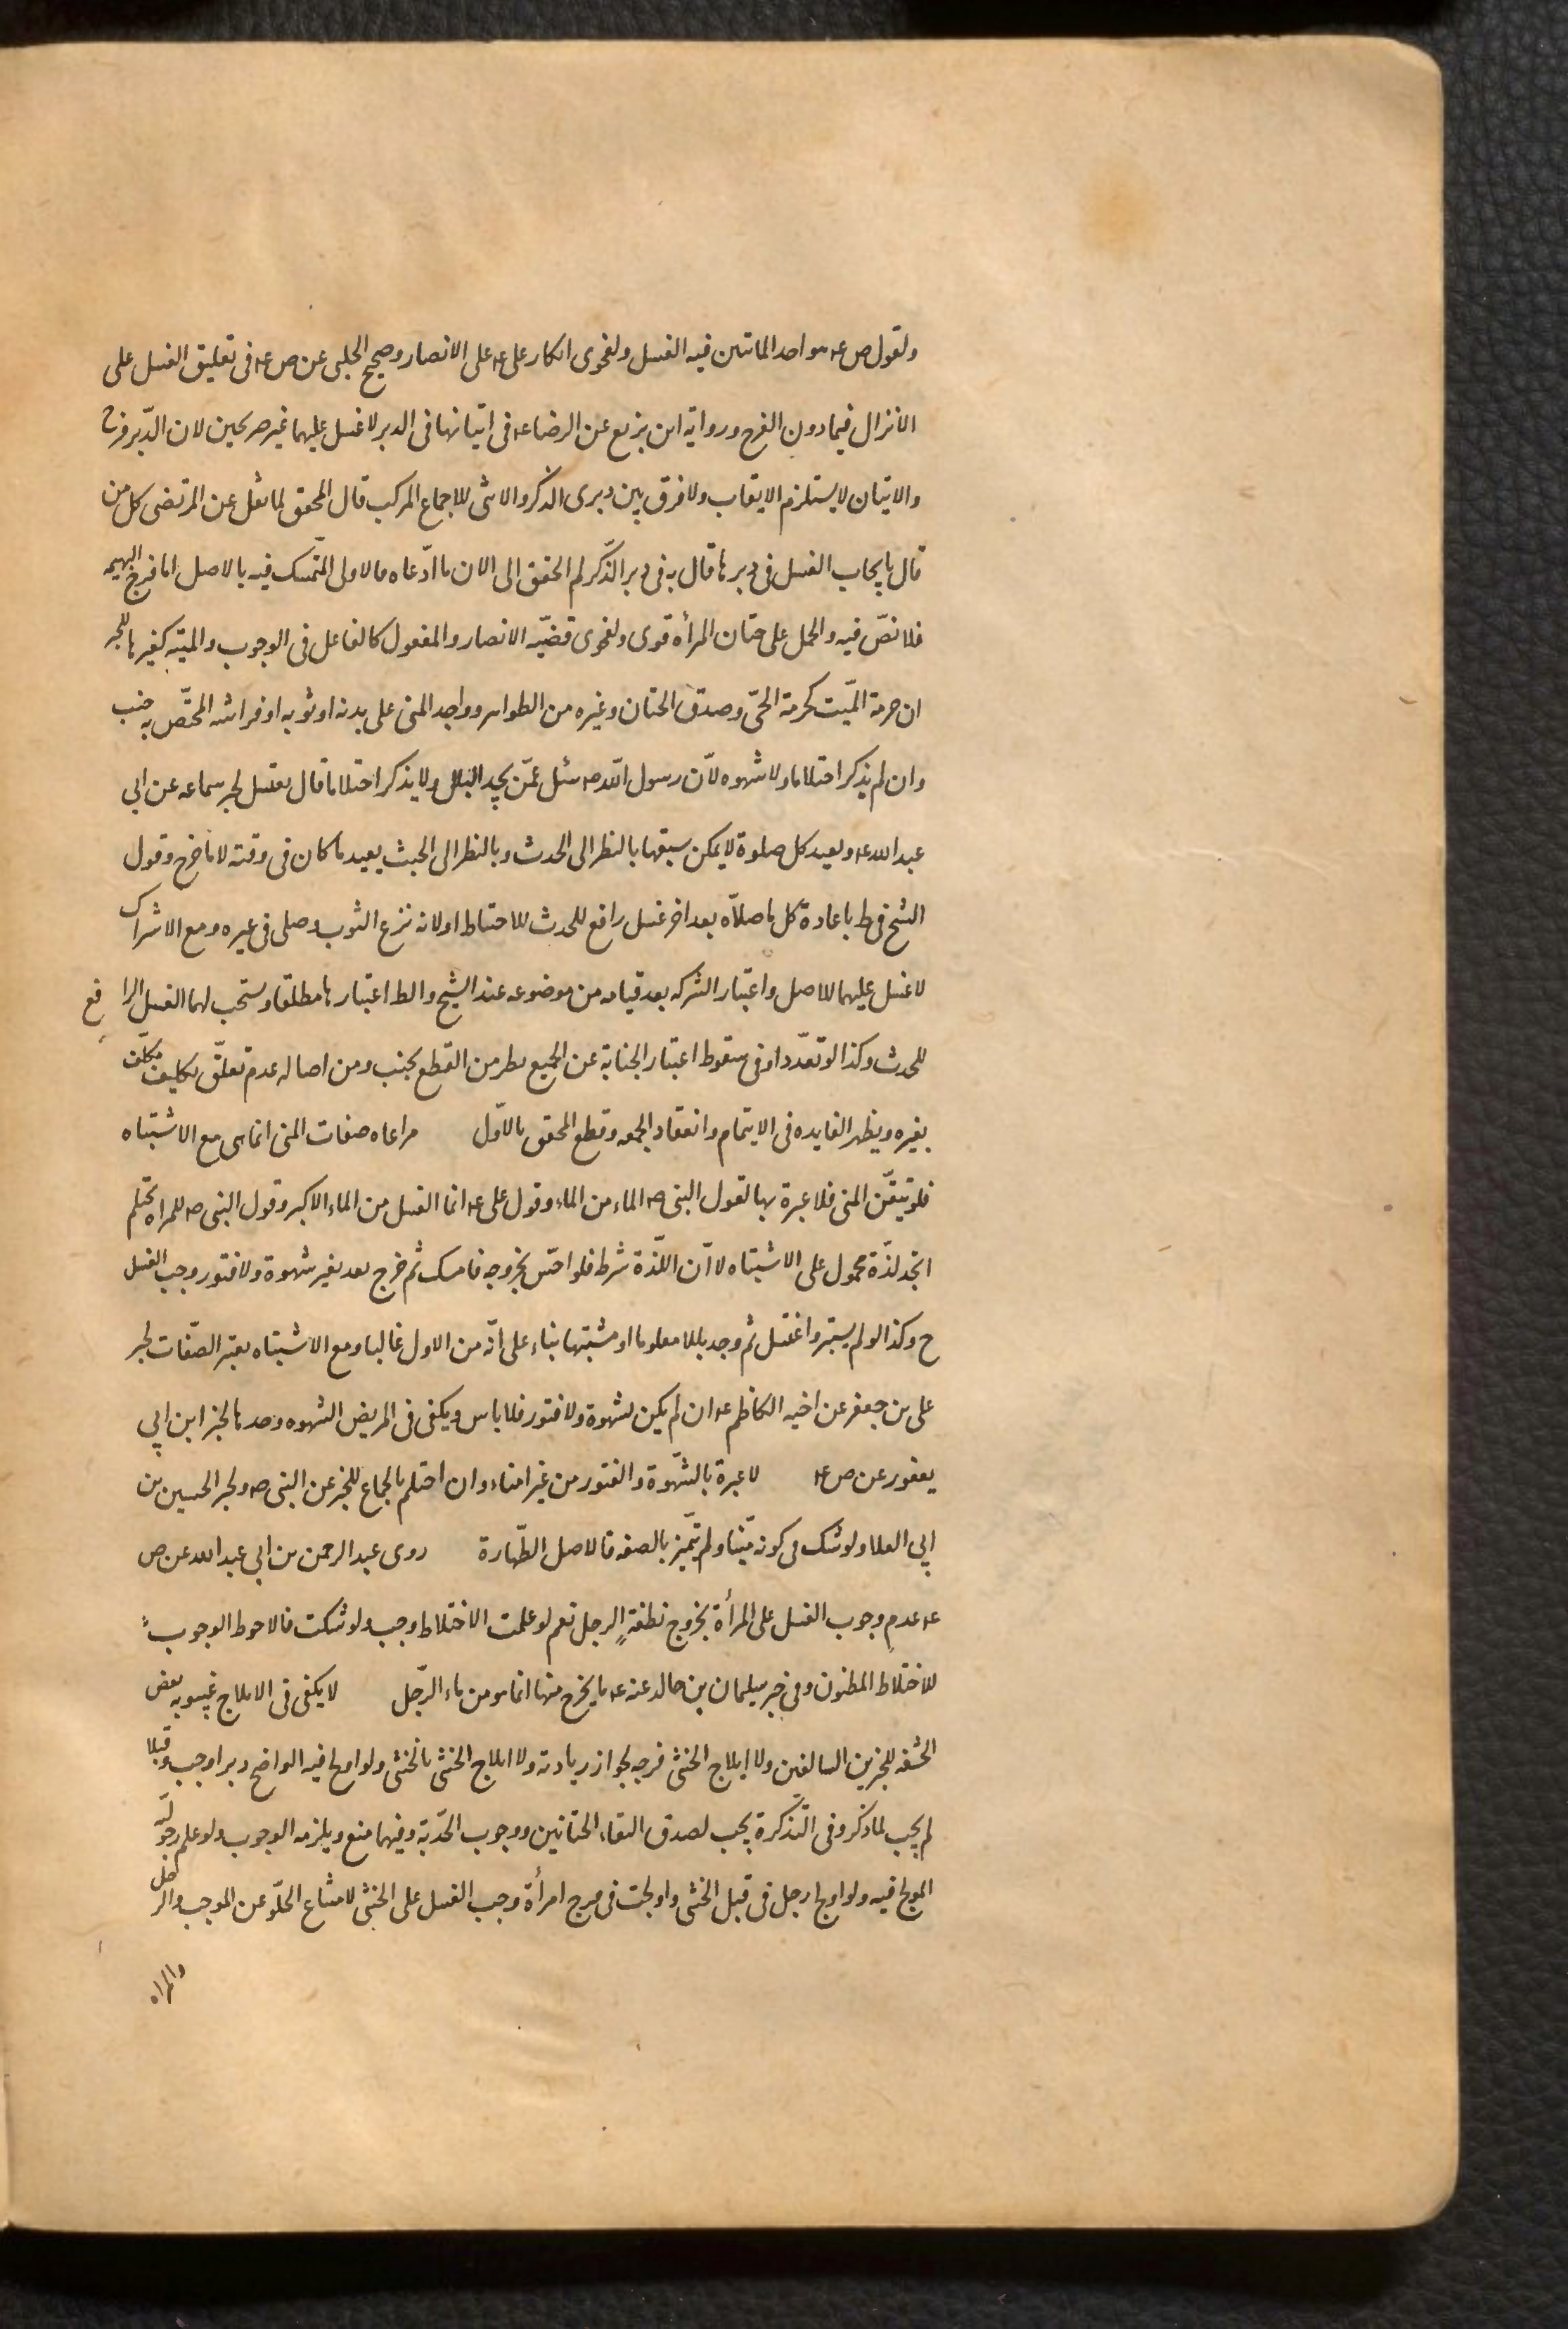 ولقول ص ع هو احد الماتيين فيه الغسل ولفحوى انكار على ع على الانصار وصحيح الحلبى عن ص ع فى تعليق الغسل على
الانزال فيما دون الفرج ورواية ابن بزيع عن الرضا ع فى اتيانها فى الدبر لا غسل عليهما غير صريحين لان الدّبر فرج
والاتيان لا يستلزم الايقاب ولا فرق بين دبرى الذكر والانثى للاجماع المركب قال المحقق لما نقل عن المرتضى كل من
قال بايجاب الغسل فى دبرها قال به فى دبر الذّكر لم اتحقق الى الان ما ادّعاه فالاولى التمسّك فيه بالاصل اما فرج البهيمه
فلا نصّ فيه والحمل على ختان المرأه قوى ولفحوى قضيّه الانصار والمفعول كالفاعل فى الوجوب والميّته كغيرها للخبر
ان حرمة الميّت كحرمة الحىّ وصدق الختان وغيره من الظواهر وواجد المنى على بدنه او ثوبه او فراشه المختّص به جنب
وان لم يذكر احتلاما ولا شهوه لأن رسول اللّه ص سئل عمّن يجد البلل ولا يذكر احتلاما قال يغتسل لخبر سماعه عن ابى
عبد الله ع ويعيد كل صلوة لا يمكن سبقها بالنظر الى الحدث وبالنظر الى الخبث يعيد ما كان فى وقته لا ما خرج وقول
الشيخ فى ط باعادة كل ما صلاّه بعد اخر غسل رافع للحدث للاحتياط او لانه نزع الثوب وصلى فى غيره ومع الاشتراك
لا غسل عليهما للاصل واعتبار الشركه بعد قيامه من موضوعه عند الشيخ والظ اعتبارها مطلقا ويستحب لهما الغسل الرافع
للحدث وكذا لو تعدّدا وفى سقوط اعتبار الجنابة عن الجميع نظر من القطع بجنب ومن اصاله عدم تعلّق تكليف مكلّف
بغيره ويظهر الفايده فى الايتمام وانعقاد الجمعه وقطع المحقق بالاوّل مراعاه صفات المنى انما هى مع الاشتباه
فلو تيقّن المنى فلا عبرة بها لقول النبى ص الماء من الماء وقول على ع انما الغسل من الماء الاكبر وقول النبى ص للمراه تحتلم
اتجد لذّة محمول على الاشتباه لا أن اللّذة شرط فلو احسّ بخروجه فامسك ثم خرج بعد بغير شهوة ولا فتور وجب الغسل
ح وكذا لو لم يستبر واغتسل ثم وجد بللا معلوما او مشتبها بناء على انّه من الاول غالبا ومع الاشتباه يعتبر الصّفات لخبر
على بن جعفر عن اخيه الكاظم ع ان لم يكن لشهوة ولا فتور فلا باس ويكفى فى المريض الشهوه وحدها لخبر ابن ابى
يعفور عن ص ع لا عبرة بالشّهوة والفتور من غير امناء وان احتلم بالجماع للخبر عن النبى ص ولخبر الحسين بن
ابى العلا ولو شك فى كونه منّيا ولم يتميّز بالصفه فالاصل الطّهارة روى عبد الرحمن بن ابى عبد الله عن ص
ع عدم وجوب الغسل على المرأة بخروج نطفة الرجل نعم لو علمت الاختلاط وجب ولو شكت فالاحوط الوجوب
للاختلاط المظنون وفى خبر سليمان بن خالد عنه ع ما يخرج منها انما هو من ماء الرّجل لا يكفى فى الايلاج غيبوبه بعض
الحشفه للخبرين السالفين ولا ايلاج الخنثى فرجه لجواز زيادته ولا ايلاج الخنثى بالخنثى ولو اولج فيه الواضح دبرا وجب وقبلا
لم يجب لما ذكر وفى التّذكرة يجب لصدق التقاء الختانين ووجوب الحدّ به وفيهما منع ويلزمه الوجوب ولو علم رجوليّه
المولج فيه ولو اولج رجل فى قبل الخنثى واولجت فى فرج امرأة وجب الغسل على الخنثى لامتناع الخلّو عن الموجب والرجل
والمراه